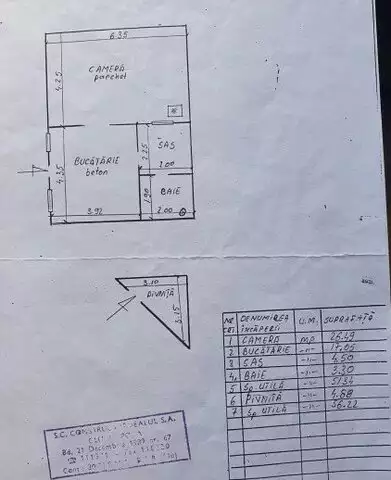 6.35
4.25
CAMERĂ
parchet
SAS
2.25
2.00
BUCĂTĂRIE
beton
4.35
BAIE
1.90
3.92
2.00
3.10
PIVNIȚĂ
3.15
NR. CRT. DENUMIREA ÎNCĂPERII U.M. SUPRAFAȚĂ
1 CAMERĂ MP 26.49
2 BUCĂTĂRIE -"- 17.05
3 SAS -"- 4.50
4. BAIE -"- 3.30
5 Sp. UTILĂ -"- 51.34
6 PIVNIȚĂ -"- 4.88
7 Sp. UTILĂ -"- 56.22
S.C. S.A.
Bd. 21 Decembrie 1989 nr. 67